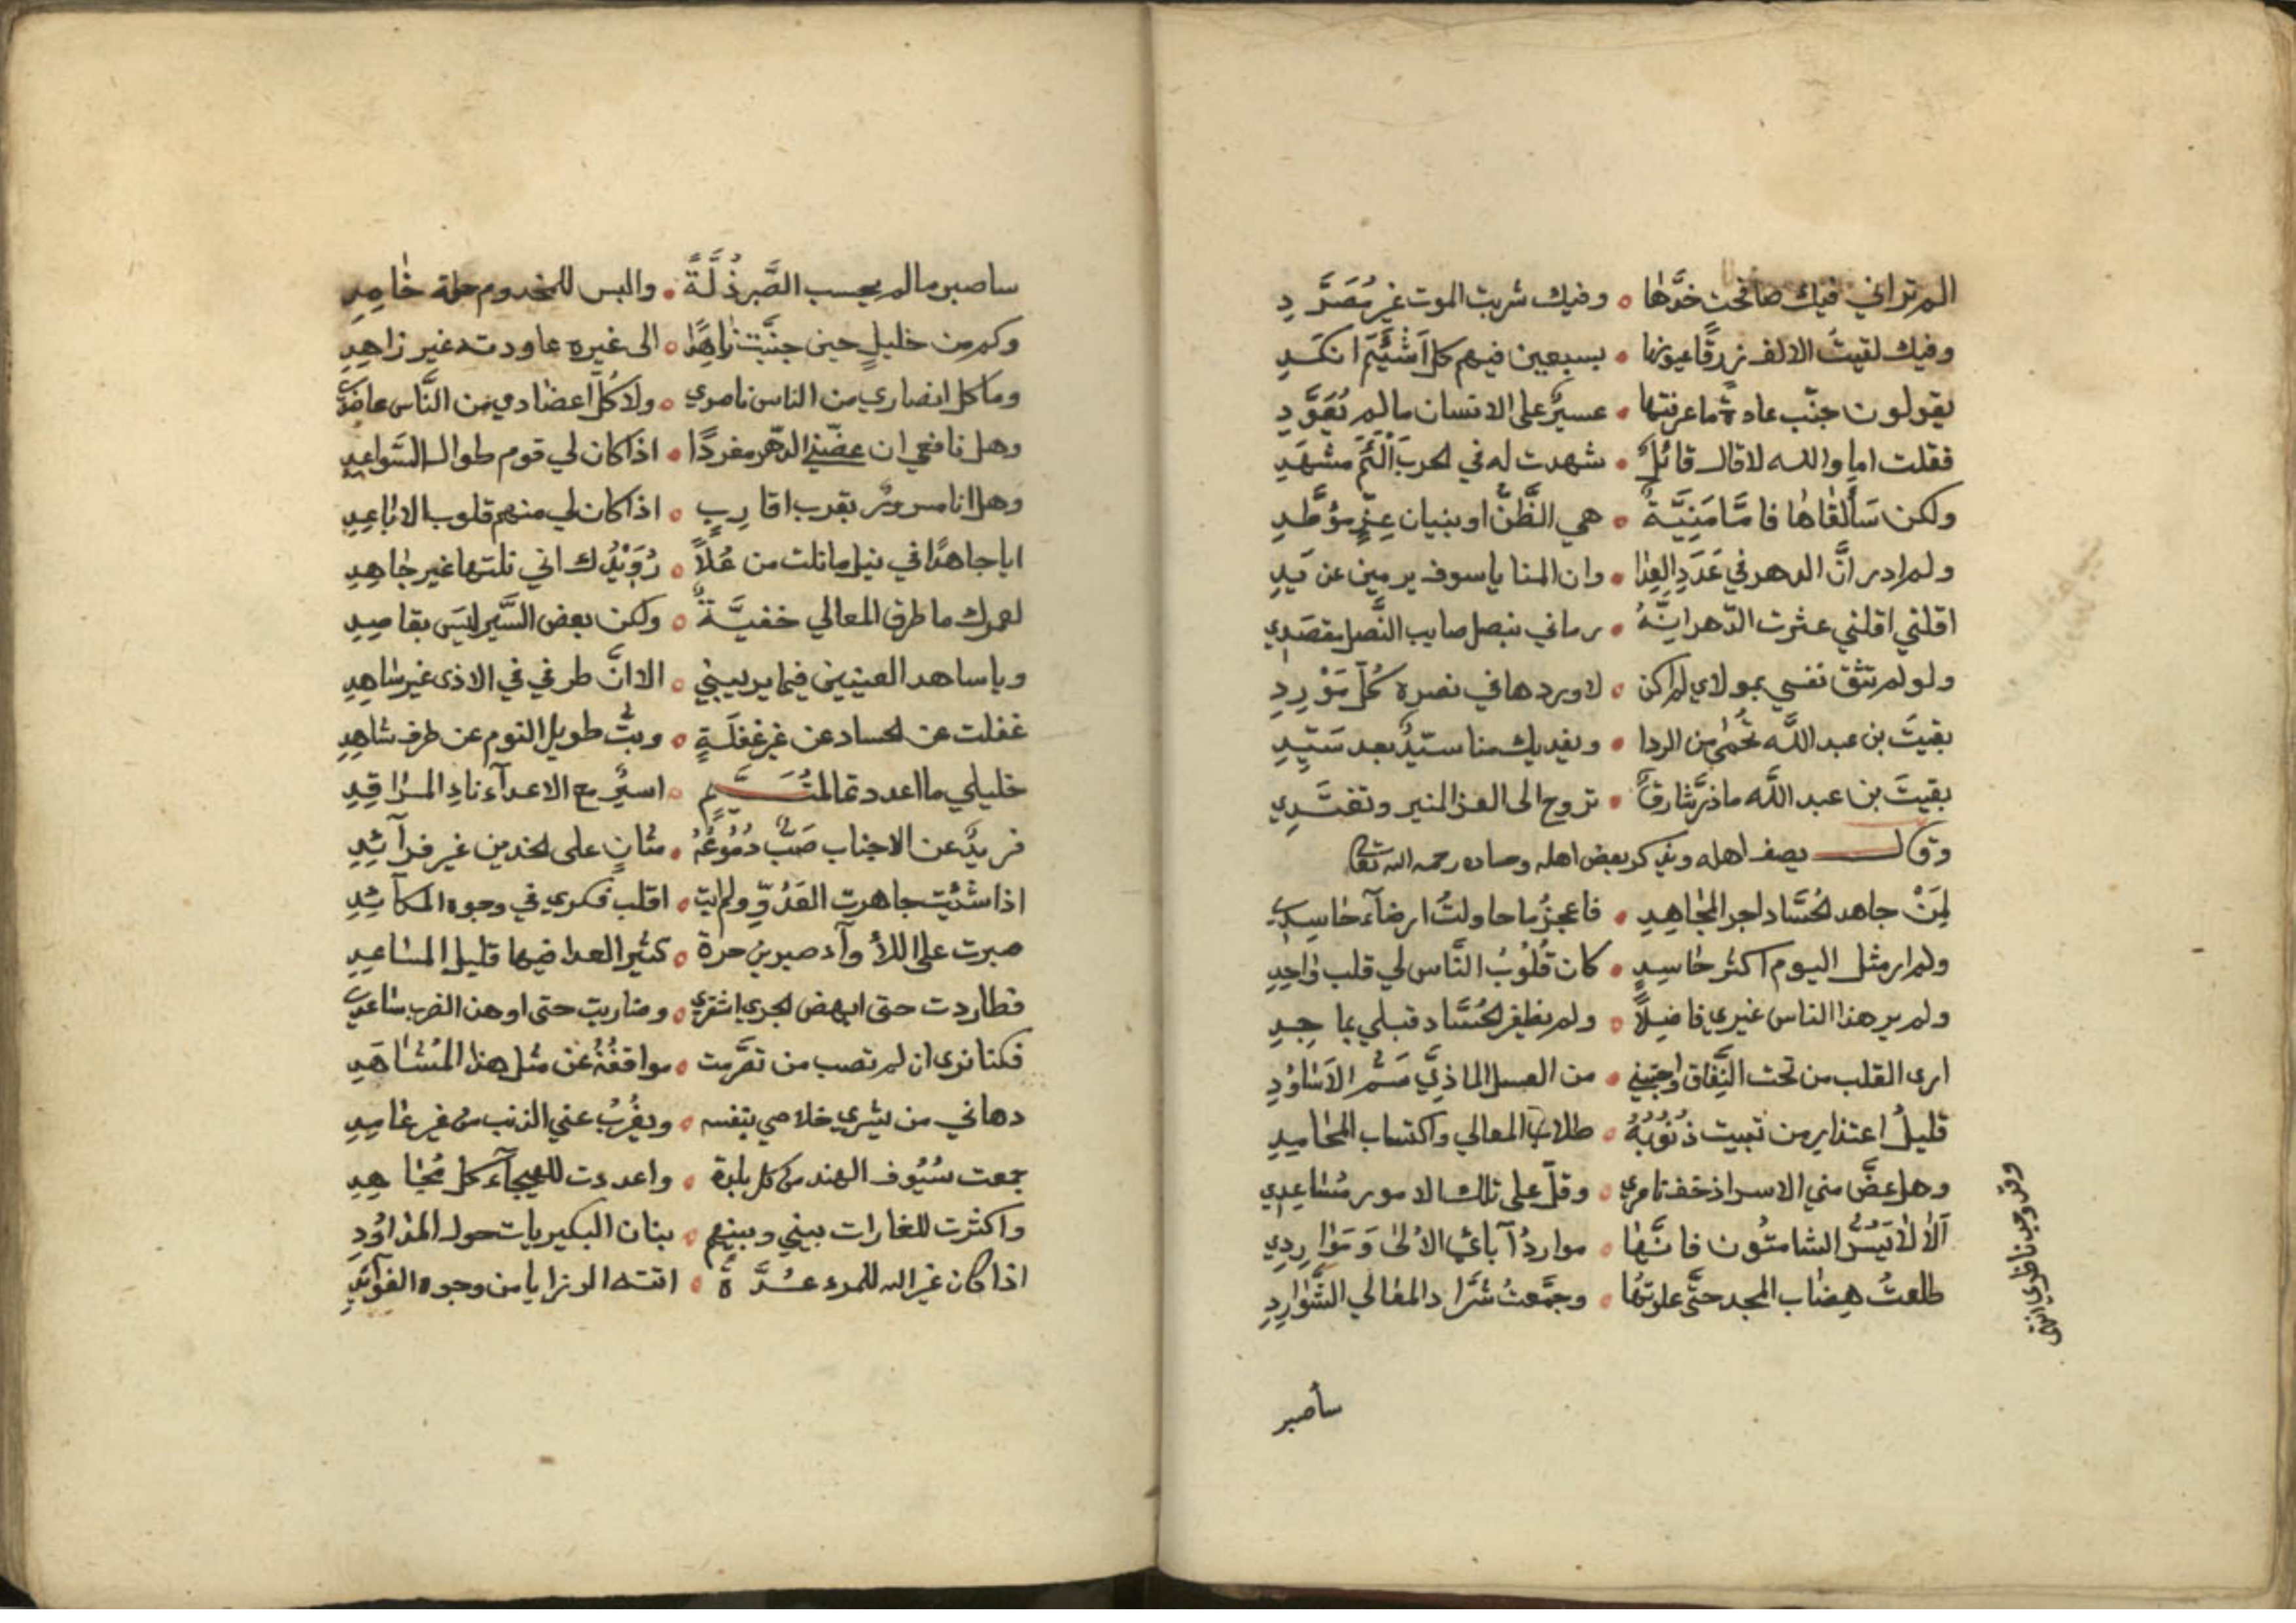 الم تر اني فيك صافحت خدَّها ٥ وفيك شربت الموت غير مُصَرَّدِ
وفيك لقيتُ الالف زرقًا عيونها ٥ بسبعين فيهم كل اَشْئَمَ انكَدِ
يقولون جنّب عادةً ما عرفتها ٥ عسيرٌ على الانسان ما لم يُعَوَّدِ
فقلت اما والله لا قال قائلٌ ٥ شهدت له في الحرب اَلْئَمَ مشهَدِ
ولكن سَألقاها فامَّا مَنِيَّةٌ ٥ هي الظَّنُّ او بنيان عِزٍّ موَطَّدِ
ولم ادر انَّ الدهر في عَدَدِ العِدا ٥ وان المنايا سوف يرمين عن يَدِ
اقلني اقلني عثرت الدّهر انَّهُ ٥ رماني بنصل صايب النَّصل مقصَدِي
ولو لم تثق نفسي بمولاي لم اكن ٥ لاوردها في نصره كُلَّ مَوْرِدِ
بقيتَ بن عبد اللَّه تُحمٰى من الردا ٥ ويفديك منا سيّدٌ بعد سَيّدِ
بقيتَ بن عبد اللَّه ما ذرَّ شارقٌ ٥ تروح الى العز المنير وتغتَدِي
وقال يصف اهله ويذكر بعض اهله وحساده رحمه الله تعالى
لِمَنْ جاهد الحُسَّاد اجر المجٰاهِدِ ٥ فاعجزُ ما حاولتُ ارضآء حٰاسِدِ
ولم ار مثل اليوم اكثر حٰاسِدٍ ٥ كان قُلُوْبُ النَّاس لي قلب وٰاحِدِ
ولم ير هذا الناس غيري فاضِلًا ٥ ولم يظفر الحُسَّاد قبلي بماجِدِ
ارى القلب من تحت النِّفاق واجتني ٥ من العسل الماذيِّ سَمَّ الاَسٰاوُدِ
قليلُ اعتذارٍ من تبيت ذنُوْبُهُ ٥ طلاب المعالي واكتساب المحٰامِدِ
وهل غضَّ مني الاسر اذ خف ناصري ٥ وقلّ على تلك الامور مُسٰاعِدِي
اَلٰا لٰا يُسَرُّ الشامتُون فانَّهٰا ٥ مواردُ آبائي الاُلىٰ وَمَوٰارِدِي
طلعتُ هِضٰاب المجد حتَّى علوتهٰا ٥ وجمَّعتُ شُرَّاد المعٰالي الشَّوٰارِدِ
سأصبر
ساصبر ما لم يحسب الصَّبر ذُلَّةً ٥ والبس للمخدوم حلة خٰامِدِ
وكم من خليلٍ حين جنَّبت زٰاهِدًا ٥ الى غيره عاودته غير زاهِدِ
وما كل انصاري من الناس ناصري ٥ ولا كُلّ اعضادي من النَّاس عاضدي
وهل نافعي ان عضّني الدّهر مفردًا ٥ اذا كان لي قوم طوال السَّواعِدِ
وهل انا مسرورٌ بقرب اقارِبٍ ٥ اذا كان لي منهم قلوب الابٰاعِدِ
ايا جاهدًا في نيل ما نلت من عُلاً ٥ رُوَيْدك اني نلتها غير جٰاهِدِ
لعمرك ما طرق المعالي خفيَّةٌ ٥ ولكن بعض السَّير ليسَ بقاصِدِ
ويا ساهد العينين فيما يريبني ٥ الا انَّ طرفي في الاذى غير سٰاهِدِ
غفلت عن الحساد عن غير غفلَةٍ ٥ وبتُّ طويل النوم عن طرف سٰاهِدِ
خليلي ما اعددتما لمتَيَّمٍ ٥ اسيرٌ مع الاعدآء نادِ المرٰاقِدِ
فريدٌ عن الاجناب صَبٌّ دُمُوْعُهُ ٥ مثٰانٍ على الخدين غير فرآئِدِ
اذا شئت جاهرت العَدُوّ ولم ابت ٥ اقلب فكري في وجوه المكآئِدِ
صبرت على اللأوآء صبر بن حرة ٥ كثير العدا فيها قليل المسٰاعِدِ
فطاردت حتى ابهض الجري اشقري ٥ وضاربت حتى اوهن الضرب سٰاعدي
فكنا نرى ان لم تصب من تصَرَّمت ٥ مواقفُهُ عن مثل هذا المُشٰاهَدِ
دهاني من يشري خلاصي بنفسه ٥ ويغرُبُ عني الذنب من غير عٰامِدِ
جمعت سُيُوف الهند من كل بلدة ٥ واعددت للهيجآء كل مُجٰاهِدِ
واكثرت للغارات بيني وبينهم ٥ بنان البكيريات حول المذاوُدِ
اذا كان غير الله للمرء عُدَّةً ٥ اتته الرزايا من وجوه الفوآئِدِ